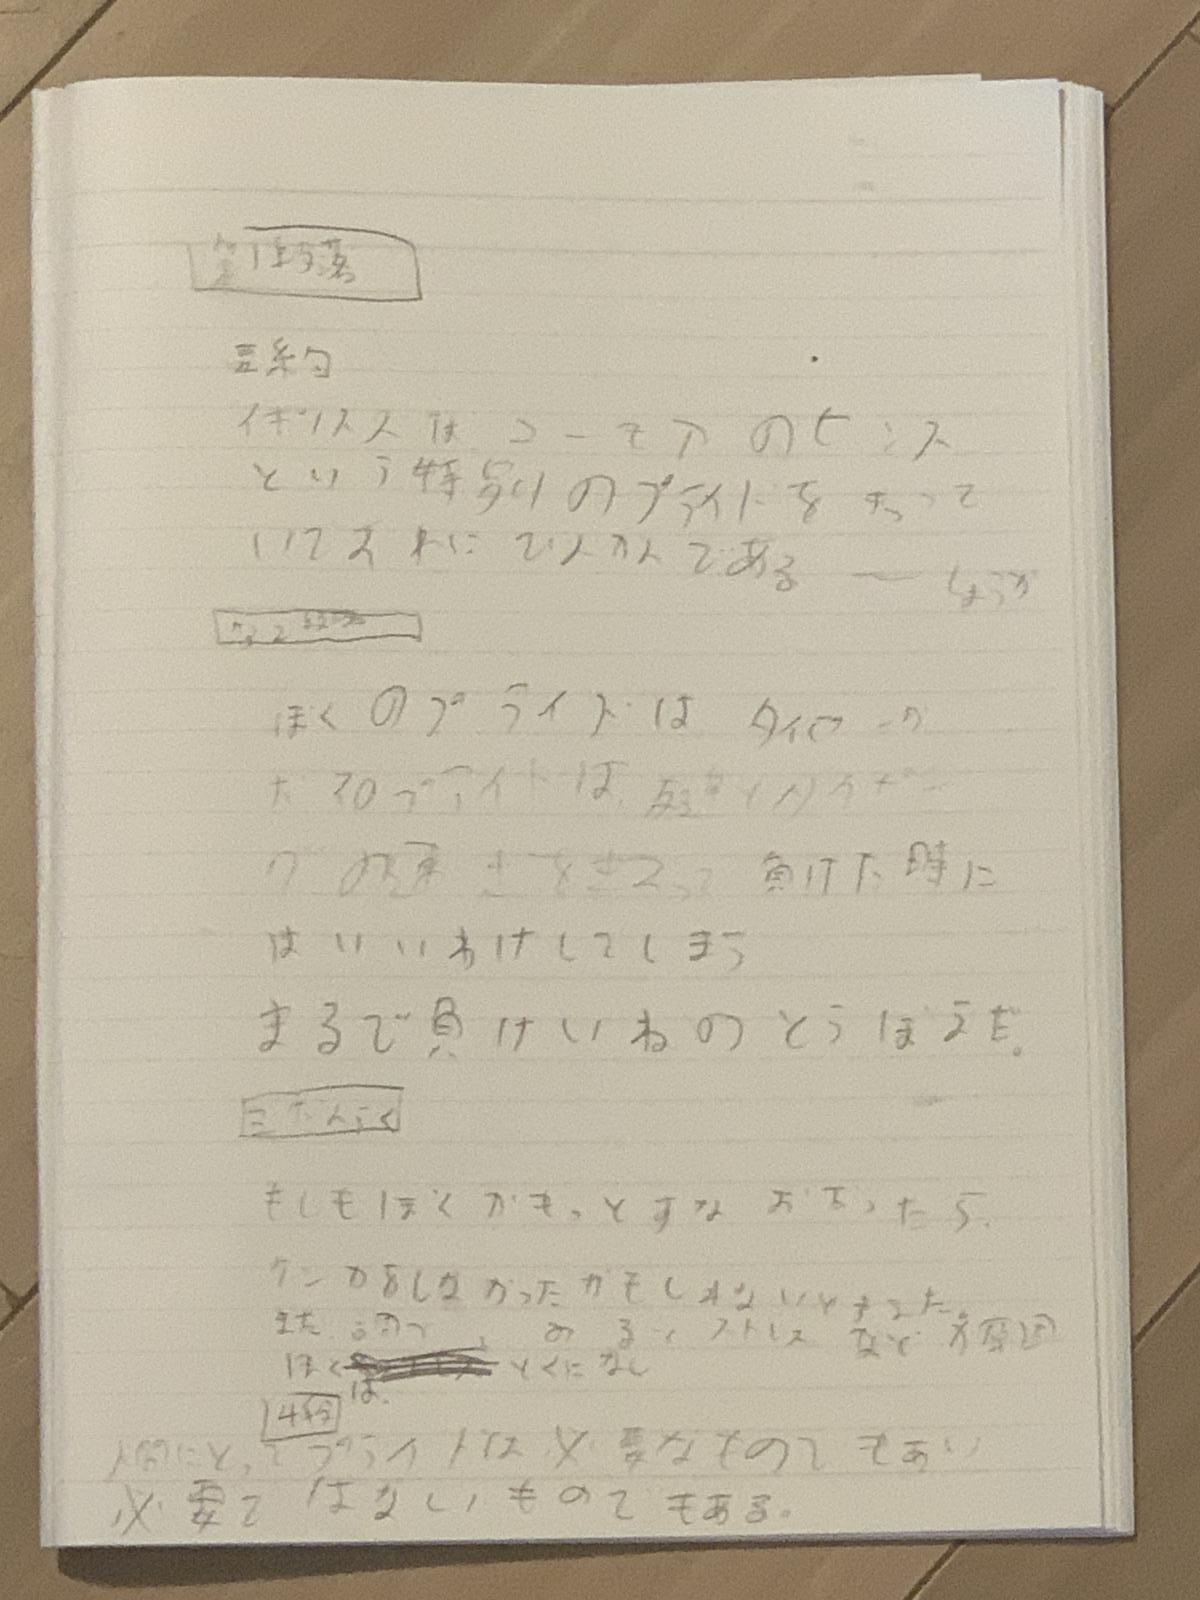 第1段落
要約
イギリス人はユーモアのセンス
という特別のプライドをもって
いてそれにびんかんである ー しょうか
第2段落
ぼくのプライドは タイピング
だ そのプライドは 友達とタイピン
グの速さをきそって 負けた時に
はいいわけしてしまう
まるで負けいぬのとうぼうだ。
三だんらく
もしもぼくがもっとすなおだったら、
ケンカをしなかったかもしれないと考えた。
また ストレス などが原因
ぼくは とくになし
4段
人間にとってプライドは必要なものでもあり
必要ではないものでもある。